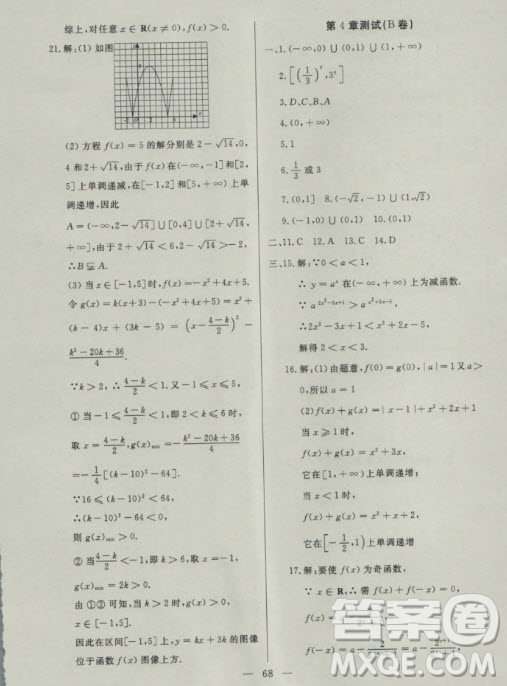 综上,对任意 x∈R(x≠0), f(x)>0.
21.解:(1)如图
(2)方程 f(x)=5 的解分别是 2-√14,0,
4 和 2+√14,由于 f(x)在(-∞,-1]和[2,
5]上单调递减,在[-1,2]和[5,+∞)上单
调递增,因此
A=(-∞,2-√14]∪[0,4]∪[2+√14,
+∞).由于 2+√14<6,2-√14>-2,
∴B⫋A.
(3)当 x∈[-1,5]时,f(x)=-x²+4x+5.
令 g(x)=k(x+3)-(-x²+4x+5)=x²+
(k-4)x+(3k-5)=(x-(4-k)/2)²-
(k²-20k+36)/4.
∵k>2,∴(4-k)/2<1.又-1≤x≤5,
①当-1≤(4-k)/2<1,即 2<k≤6 时,
取 x=(4-k)/2,g(x)min=-(k²-20k+36)/4
=-1/4[(k-10)²-64].
∵16≤(k-10)²<64,
∴(k-10)²-64<0,
则 g(x)min>0.
②当(4-k)/2<-1,即 k>6 时,取 x=-1,
g(x)min=2k>0.
由①②可知,当 k>2 时,g(x)>0,
因此在区间[-1,5]上,y=kx+3k 的图像
位于函数 f(x)图像上方.
第4章测试(B卷)
一、1.(-∞,0)∪(0,1)∪(1,+∞)
2.[(1/3)⁹,3⁹]
3.D,C,B,A
4.(0,+∞)
5.
6.1/3或3
7.(0,1] 8.(-√2,-1)∪(1,√2)
9.(-1,0)∪(0,1) 10.(-∞,0)
二、11.C 12.A 13.C 14.D
三、15.解:∵0<a<1,
∴y=aˣ在(-∞,+∞)上为减函数.
∵a^(2x²-3x+1)>a^(x²+2x-5),
∴2x²-3x+1<x²+2x-5,
解得 2<x<3.
16.解:(1)由题意,f(0)=g(0),|a|=1 又 a>
0,所以 a=1
(2)f(x)+g(x)=|x-1|+x²+2x+1
当 x≥1 时,
f(x)+g(x)=x²+3x,
它在[1,+∞)上单调递增;
当 x<1 时,
f(x)+g(x)=x²+x+2,
它在[-1/2,1)上单调递增
17.解:要使 f(x)为奇函数,
∵x∈R,∴需 f(x)+f(-x)=0,
— 68 —
答案圈
MXQE.COM